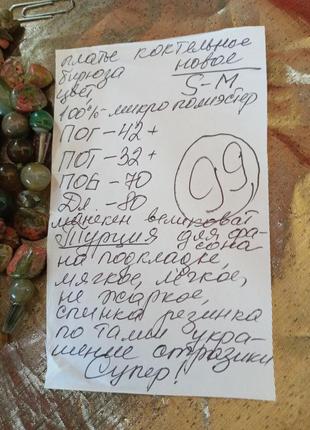 платье коктельное
бирюза новое
цвет, S-M
100%-микрополиэстер
ПОГ-42+
ПОТ-32+
ПОБ-70
Дл.-80
99,
манекен великоват
Турция для фа-
сона
на подкладке,
мягкое, лёгкое,
не жаркое,
спинка резинка
по талии укра-
шение стразики
Супер!